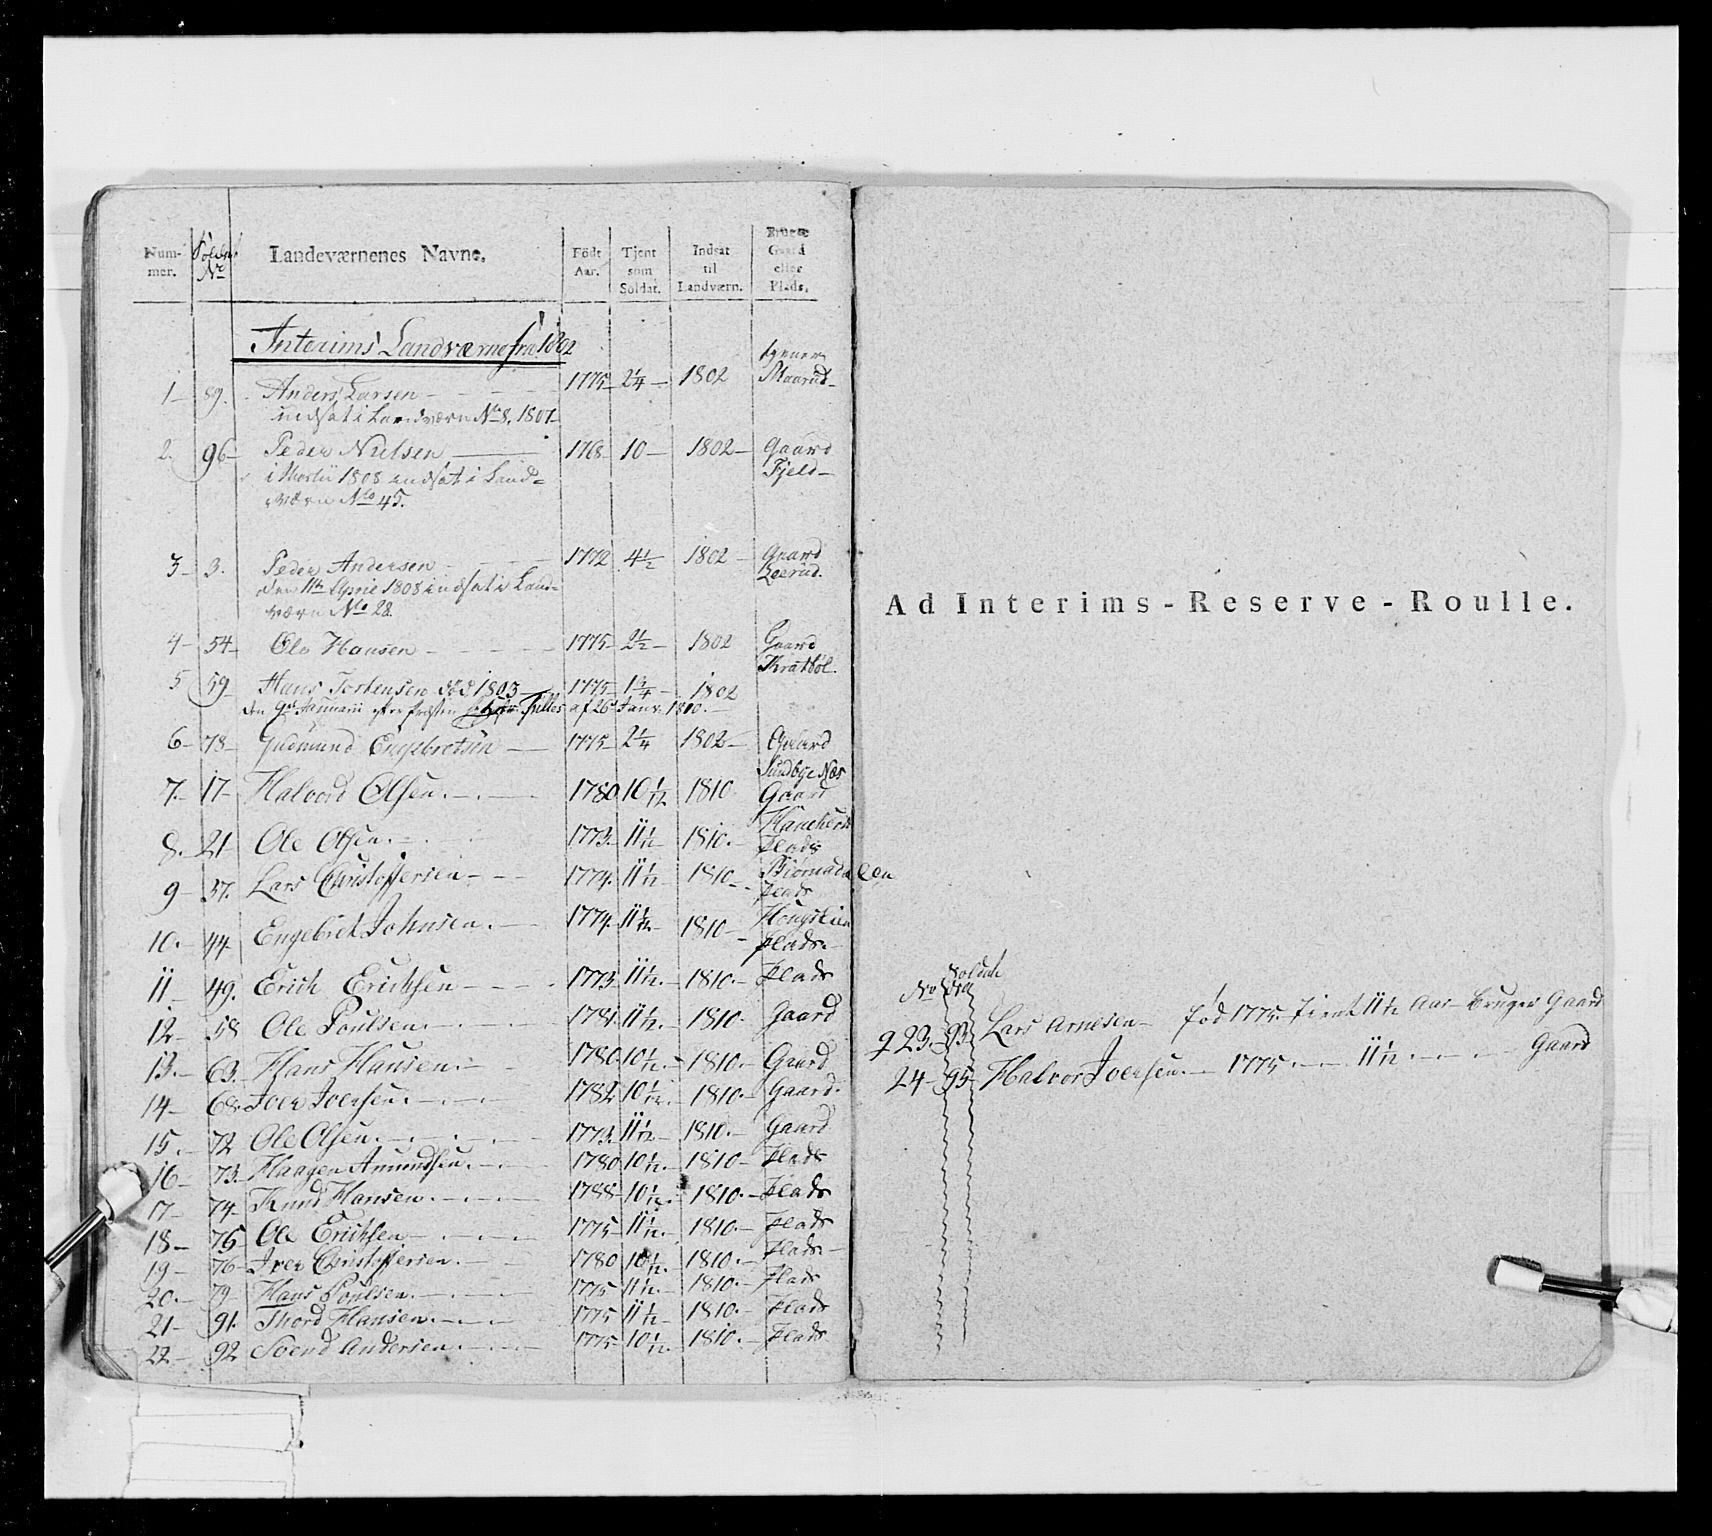 Num-mer. Soldat No Landeværnenes Navne. Födt Aar. Tjent som Soldat. Indsat til Landværn. Bruger Gaard eller Plads.
Interims Landværne fra 1802
1 89. Anders Larsen 1775 2¼ 1802 Maarud
indsat i Landværn No 8, 1807
2. 96 Peder Nielsen 1768 10 1802 Gaard Fjeld
i Martii 1808 indsat i Land=
værn No 45.
3 3. Peder Andersen 1772 4½ 1802 Gaard
den 11te April 1808 indsat i Land=
værn No 28.
4 54 Ole Hansen 1775 2½ 1802 Gaard Kratböl.
5 59 Hans Torstensen död 1803 1775 1¾ 1802
den 9de Januarii efter Præsten Tilles af 26 Janv. 1810.
6 78 Gudmund Engebretsen 1775 2¼ 1802 Gaard Sundbye Næs
7. 17 Halvord Olsen. 1780 10½ 1810 Gaard
8. 21 Ole Olsen. 1773 11½ 1810. Plads
9 37. Lars Christoffersen 1774. 11½ 1810 Plads
10. 44 Engebret Johnsen. 1774. 11½ 1810 Plads.
11 49. Erich Erichsen 1773 11½ 1810. Plads
12 58 Ole Poulsen. 1781 11½ 1810. Gaard
13. 63. Hans Hansen. 1780 10½ 1810. Gaard
14 68. Iver Iversen. 1782 10½ 1810. Gaard.
15. 72 Ole Olsen. 1773. 11½ 1810. Gaard
16 73. Haagen Amundsen. 1780 10½ 1810 Plads
17 74. Knud Hansen. 1788 10½ 1810. Plads
18 75 Ole Erichsen 1775 11½ 1810. Plads
19 76 Iver Christoffersen. 1780 10½ 1810. Plads.
20. 79 Hans Poulsen. 1775 11½ 1810. Plads
21 91. Thord Hansen. 1775 11½ 1810. Plads
22 92 Svend Andersen. 1775 10½ 1810. Plads
Ad Interims-Reserve-Roulle.
No Soldat No
23. 93 Lars Arnesen föd 1775. tient 11½ Aar bruger Gaard
24 95 Halvor Iversen. 1775 11½ Gaard